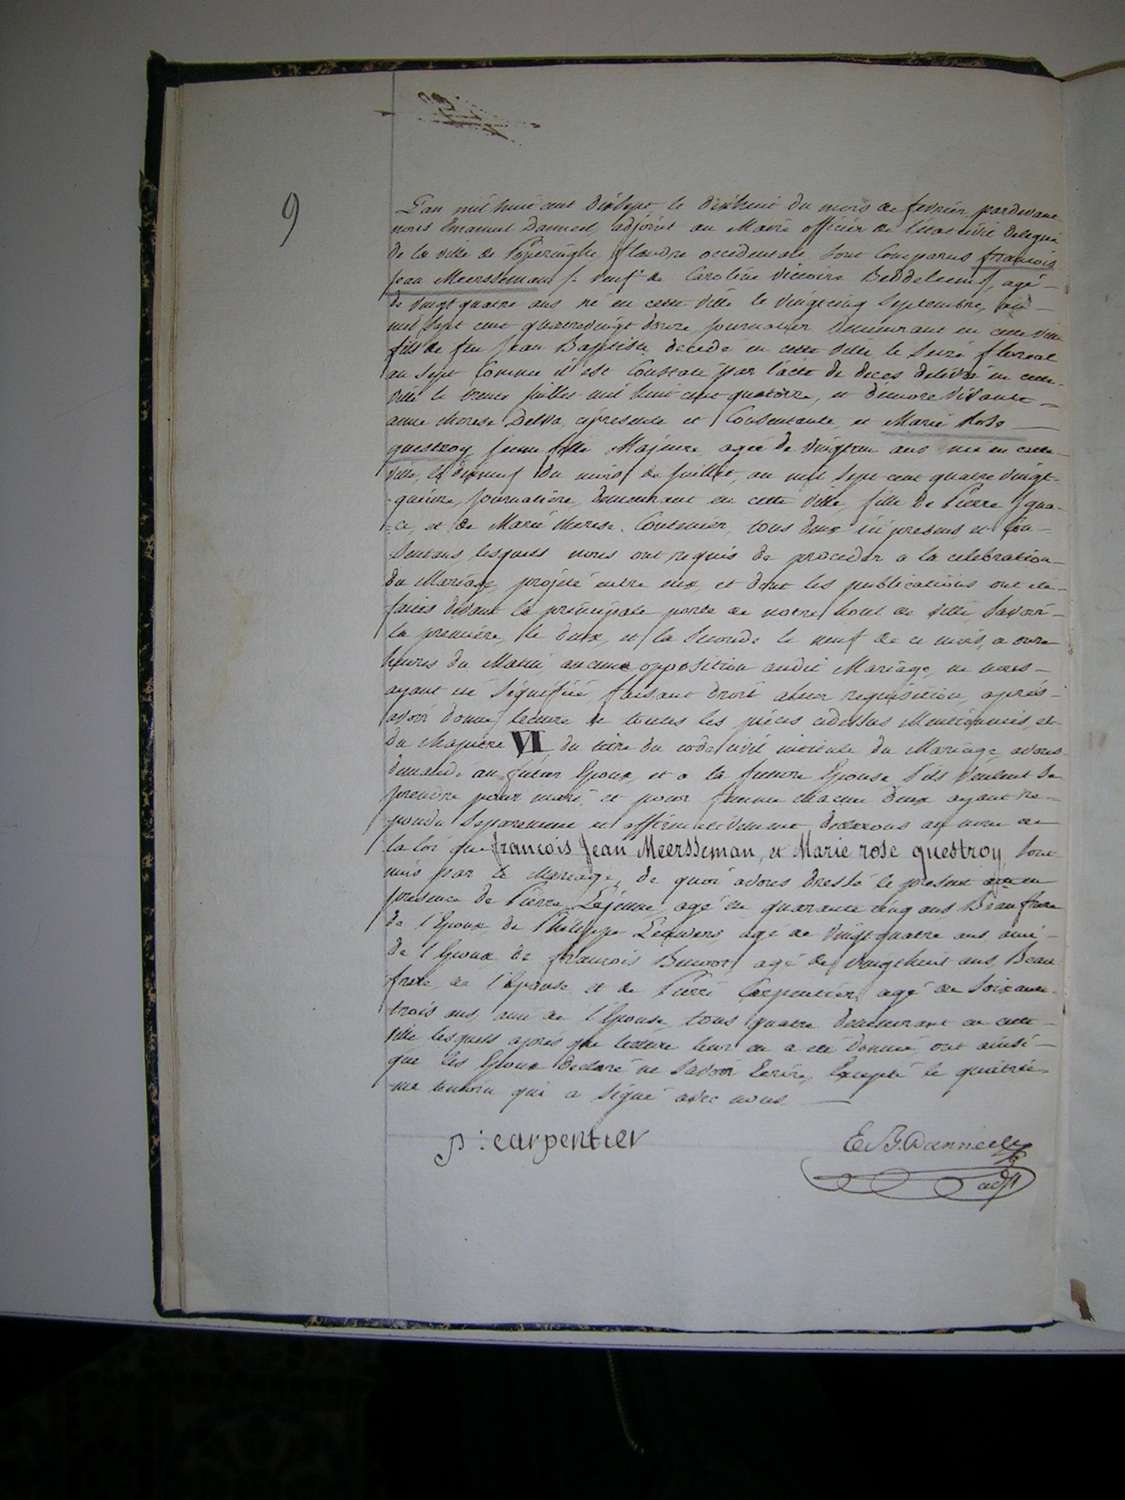 9
L'an mil huit cent dix sept le dix huit du mois de fevrier pardevant
nous Emanuel Danneel, adjoint au Maire officier de l'état civil delegué
de la ville de Poperinghe, flandre occidentale, sont comparus francois
jean Meersseman, veuf de Caroline victoire agé
de vingt quatre ans né en cette ville le vingt cinq septembre, an
mil sept cent quatre vingt douze journalier demeurant en cette ville
fils de feu jean Baptiste decedé en cette ville le seize floreal
an sept comme il est constaté par l'acte de deces delivré en cette
ville le trente juillet mil huit cent quatorze, et demere vivante
anne therese Delva, cipresente et consentante, et Marie Rose
questroy jeune fille Majeure, agée de vingt un ans née en cette
ville, le dix neuf du mois de juillet, an mil sept cent quatre vingt
quinze, journaliere, demeurant en cette ville, fille de Pierre Igna-
ce, et de Marie therese tous deux ici presens et con-
sentans, lesquels nous ont requis de proceder a la celebration
du Mariage projeté entre eux, et dont les publications ont été
faites devant la principale porte de notre hotel de ville, savoir
la premiere, le deux, et la seconde le neuf de ce mois, a onze
heures du Matin, aucune opposition audit Mariage, ne nous
ayant été signifiée, faisant droit aleur requisition, aprés
avoir donné lecture de toutes les pièces cidessus Mentionnées, et
du chapitre VI du titre du code civil intitulé du Mariage, avons
demandé au futur Epoux, et a la future Epouse s'ils veulent se
prendre pour mari, et pour femme chacun deux ayant re-
pondu separement et affirmativement declarons au nom de
la loi que francois Jean Meersseman, et Marie rose questroy, sont
unis par le Mariage, de quoi avons dressé le present acte en
presence de Pierre Lejeune, agé de quarante cinq ans Beau frere
de l'Epoux de Philippe agé de vingt quatre ans ami
de l'Epoux, de francois agé de vingt huit ans Beau
frere de l'Epouse, et de Pierre Carpentier, agé de soixante
trois ans, ami de l'Epouse, tous quatre demeurant en cette
ville lesquels après que lecture leur en a été donnée, ont ainsi
que les Epoux declaré ne savoir Ecrire, Excepté le quatrié-
me temoin qui a signé avec nous
p: carpentier
E. B. Danneel
adjt